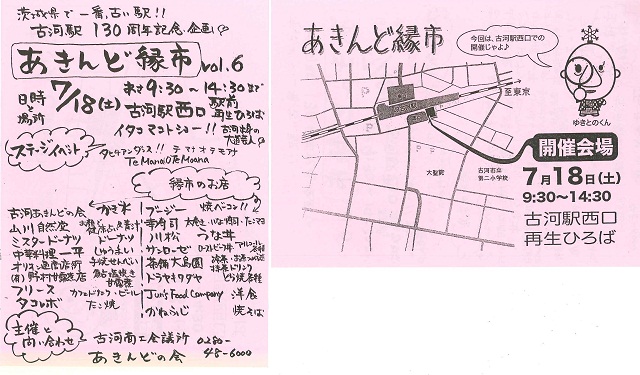 茨城県で一番、古い駅!!
古河駅130周年記念企画
あきんど縁市 vol.6
日時と場所
7/18(土)
あさ9:30〜14:30まで
古河駅西口 駅前再生ひろば
イタコマントショー!! 古河出身の大道芸人
ステージイベント
タヒチアンダンス!! テマナオテモアナ
Te Manao O Te Moana
縁市のお店
古河あきんどの会 かき氷
山川自然堂
ミスタードーナツ ドーナツ
中華料理一平 しゅうまい
オリオン通商店街 手焼せんべい
(有)野村甘露煮店 鮎塩焼き 甘露煮
フリース カフェドリンク・ビール
タコレボ たこ焼
ブージー 焼ベーコン!!
寿寿司 太巻き・いなり寿司・たこマヨ
川松 うな丼
サンローゼ ローストビーフ丼
茶舗大島園
ドラヤキワダヤ どら焼各種
Jun's Food Company 洋食
かねふじ 焼そば
主催と問い合わせ
古河商工会議所 0280-
あきんどの会 48-6000
あきんど縁市
今回は、古河駅西口での
開催じゃよ♪
ゆきとのくん
至東京
P
P
大聖院
古河市立
第二小学校
開催会場
7月18日(土)
9:30~14:30
古河駅西口
再生ひろば